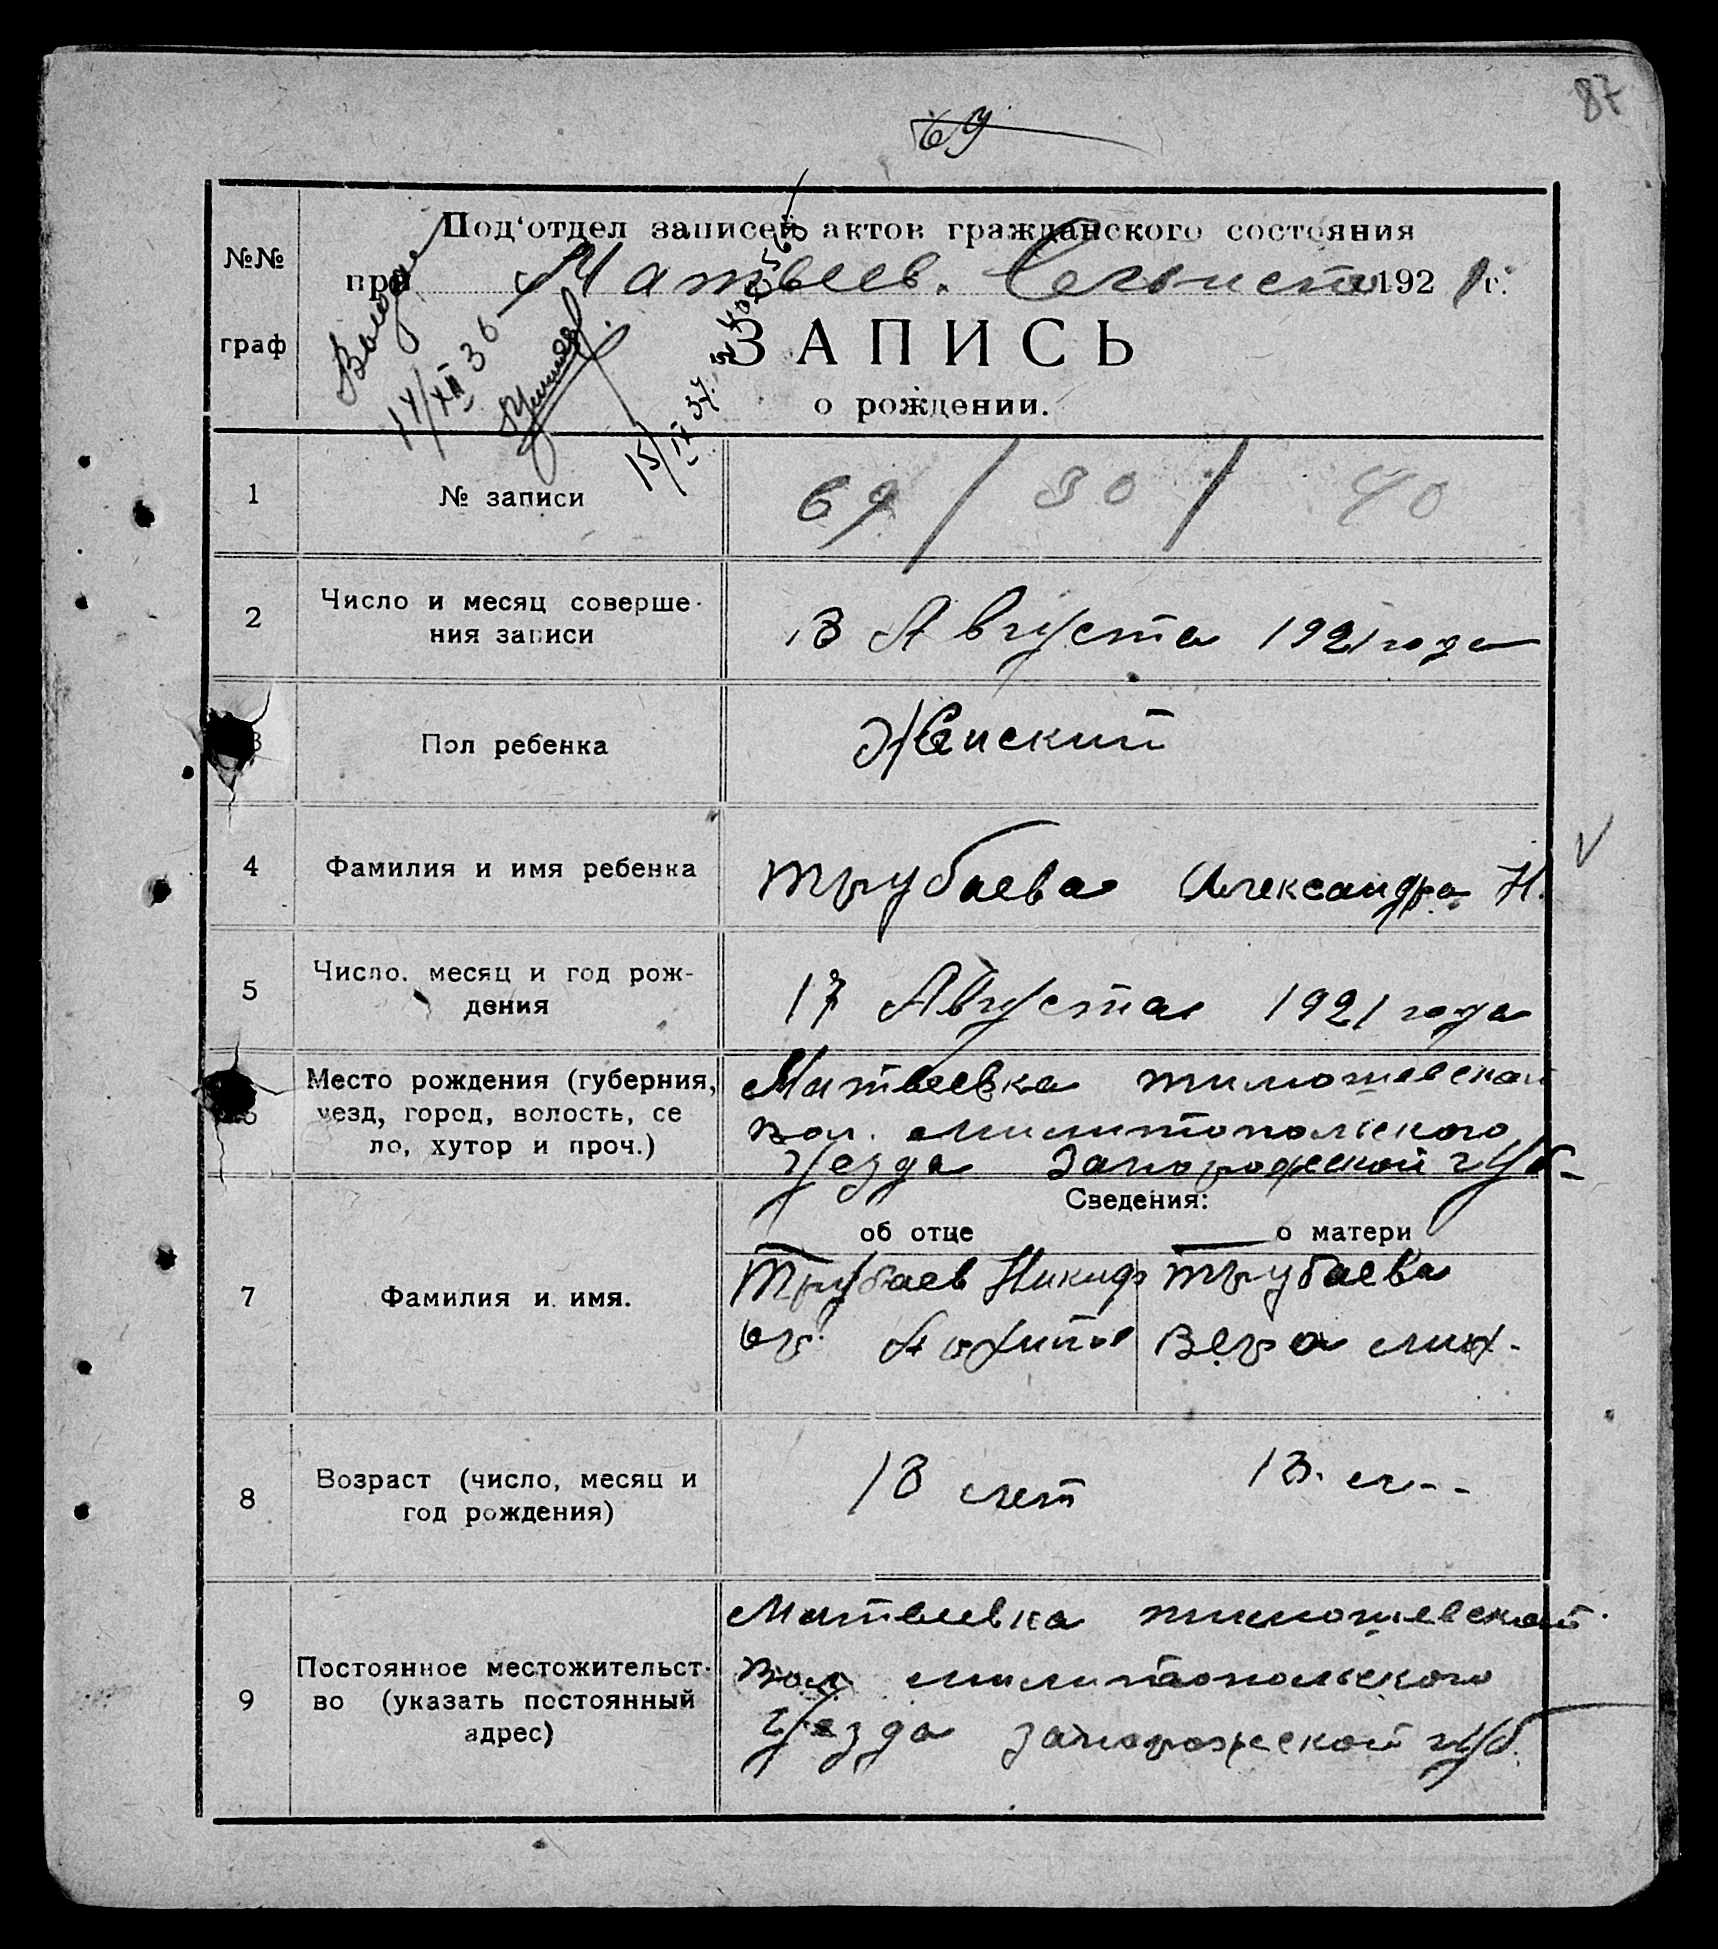 87
69
№№ граф
Под'отдел записей актов гражданского состояния
при Матвеев. 1921 г.
ЗАПИСЬ
о рождении.
14/XII 36
15/IX 37.
1 № записи 69 / 30 / 40
2 Число и месяц соверше-
ния записи
Августа 1921 года
3 Пол ребенка Женский
4 Фамилия и имя ребенка Трубаева Александра Н.
5 Число. месяц и год рож-
дения
17 Августа 1921 года
6 Место рождения (губерния,
уезд, город, волость, се
ло, хутор и проч.)
Матвеевка тимошевской
вол. милитопольского
уезда Запорожской губ-
Сведения:
об отце о матери
7 Фамилия и имя.
Трубаев Никиф
ор
Трубаева
Вера мих.
8 Возраст (число, месяц и
год рождения)
18 лет 18. л--
9 Постоянное местожительст-
во (указать постоянный
адрес)
Матвеевка тимошевской
вол милитопольского
Уезда запорожской губ.